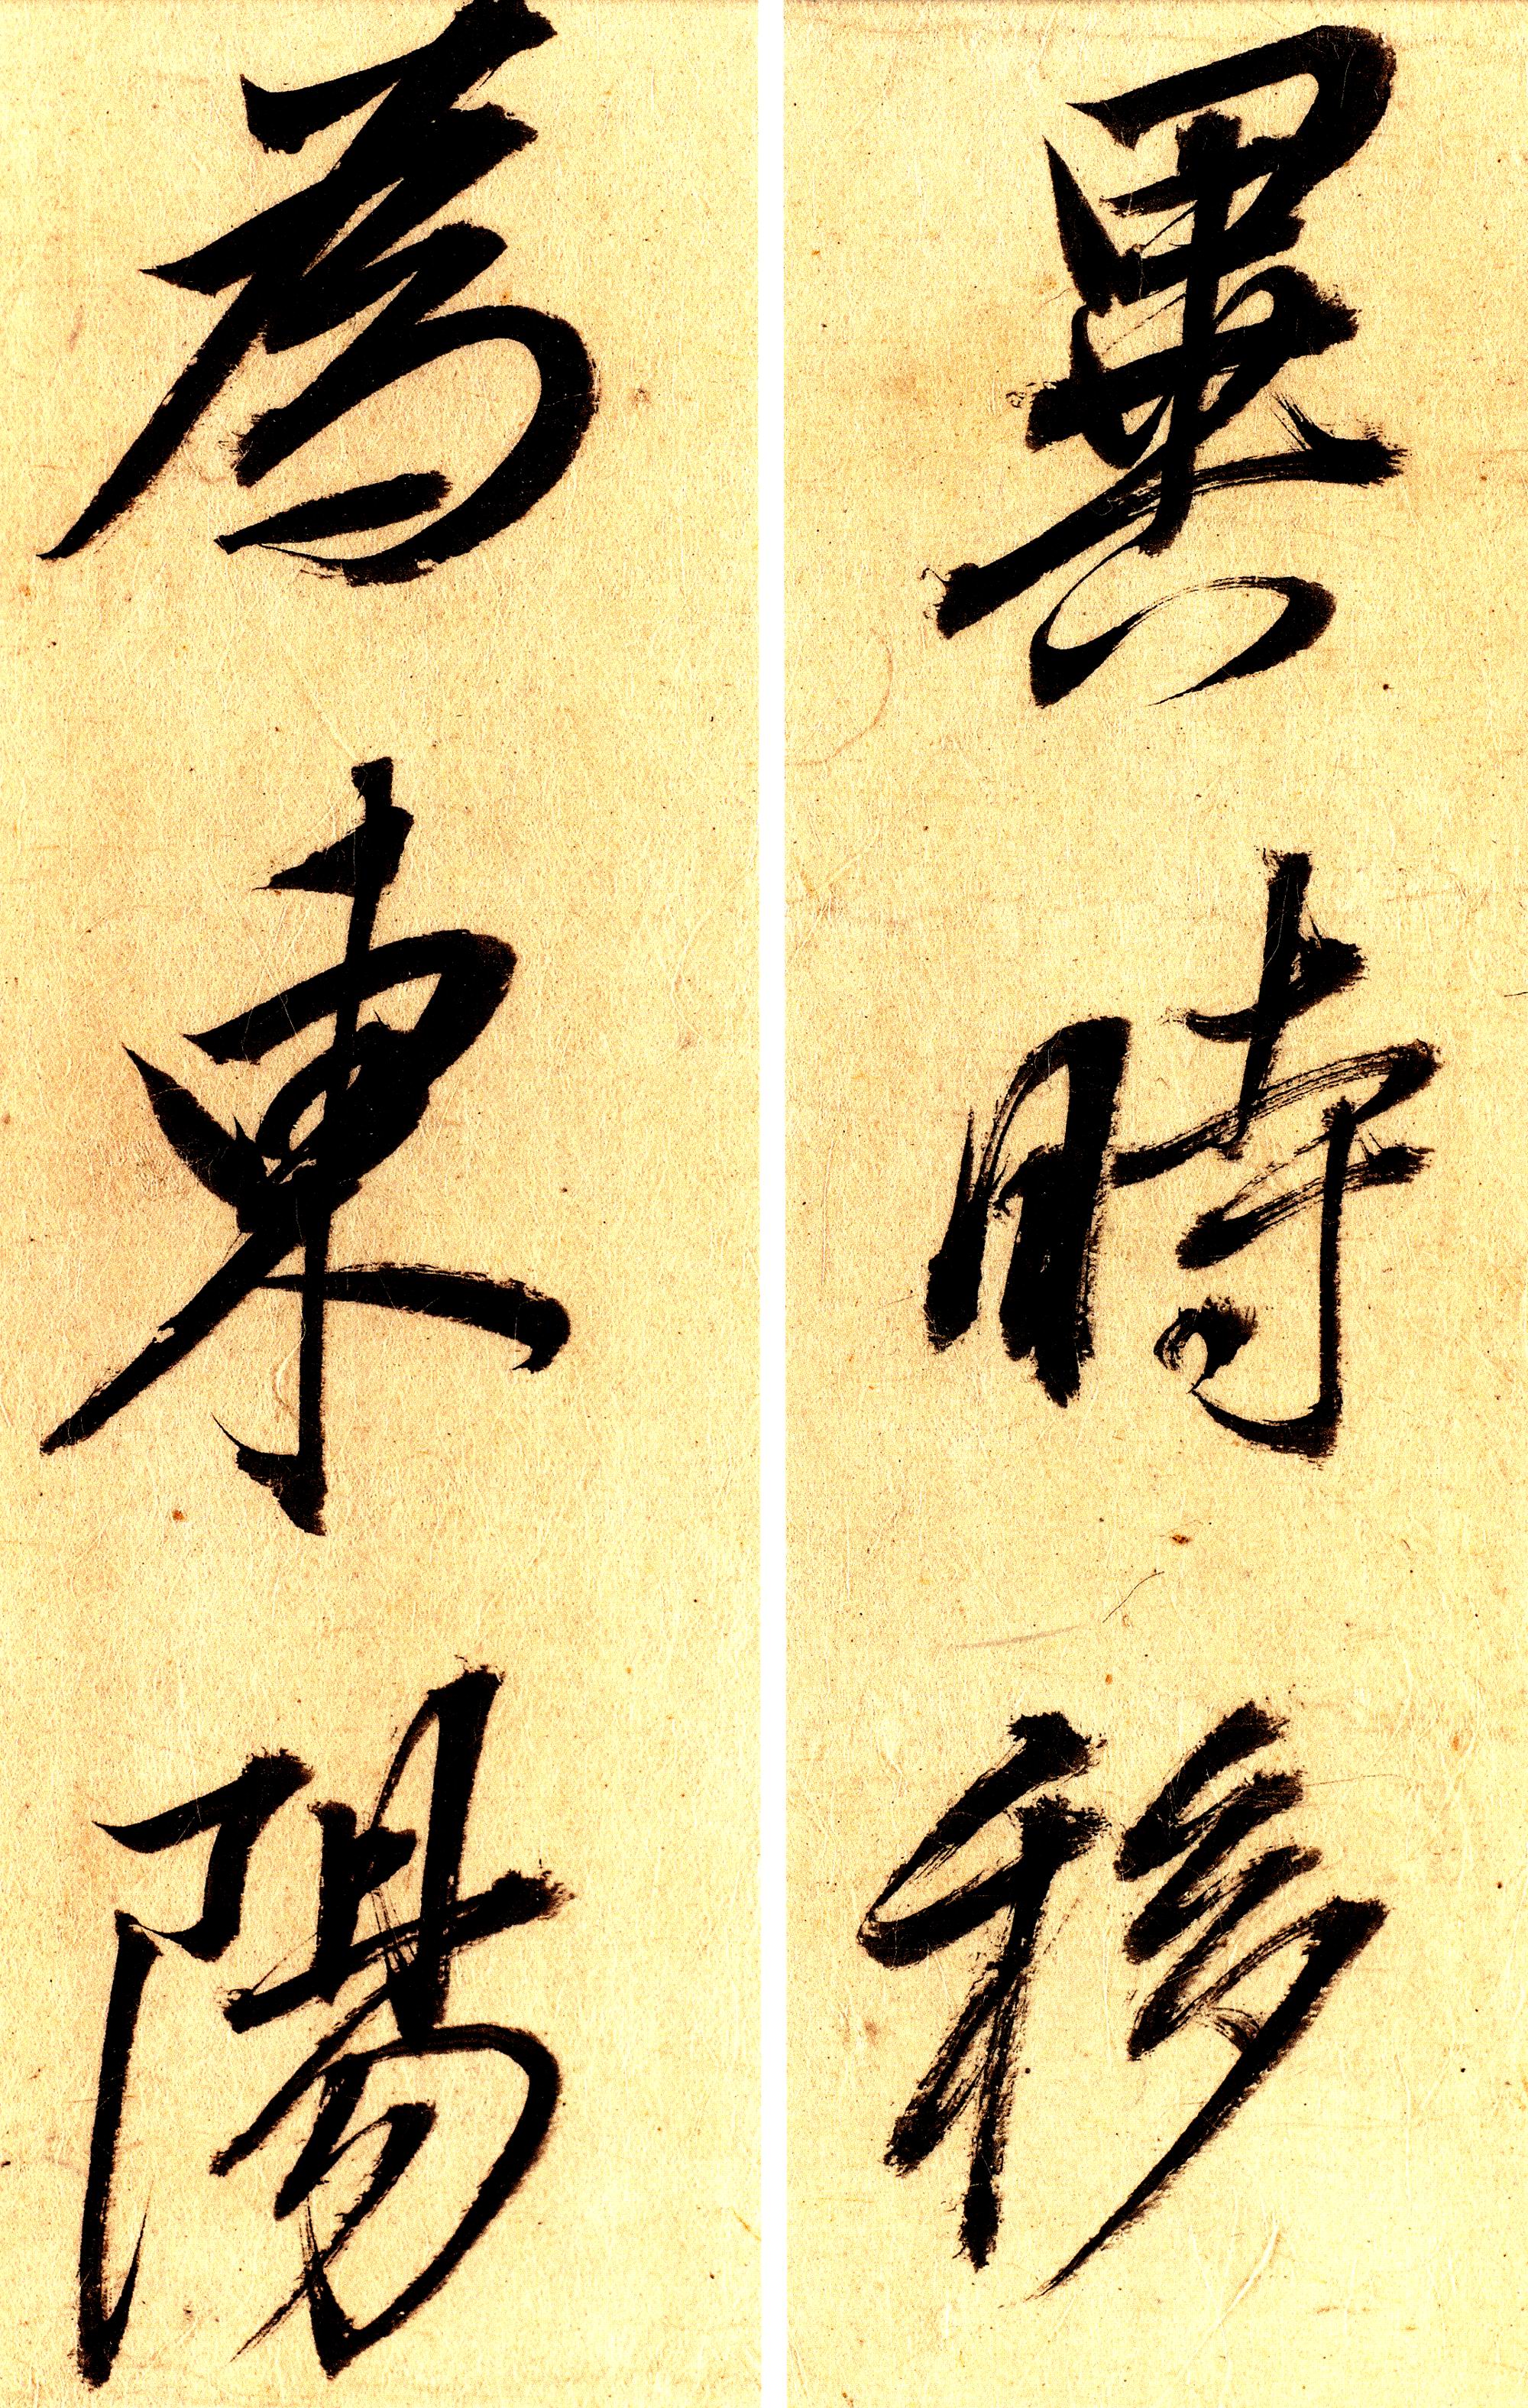 異時移
為東陽